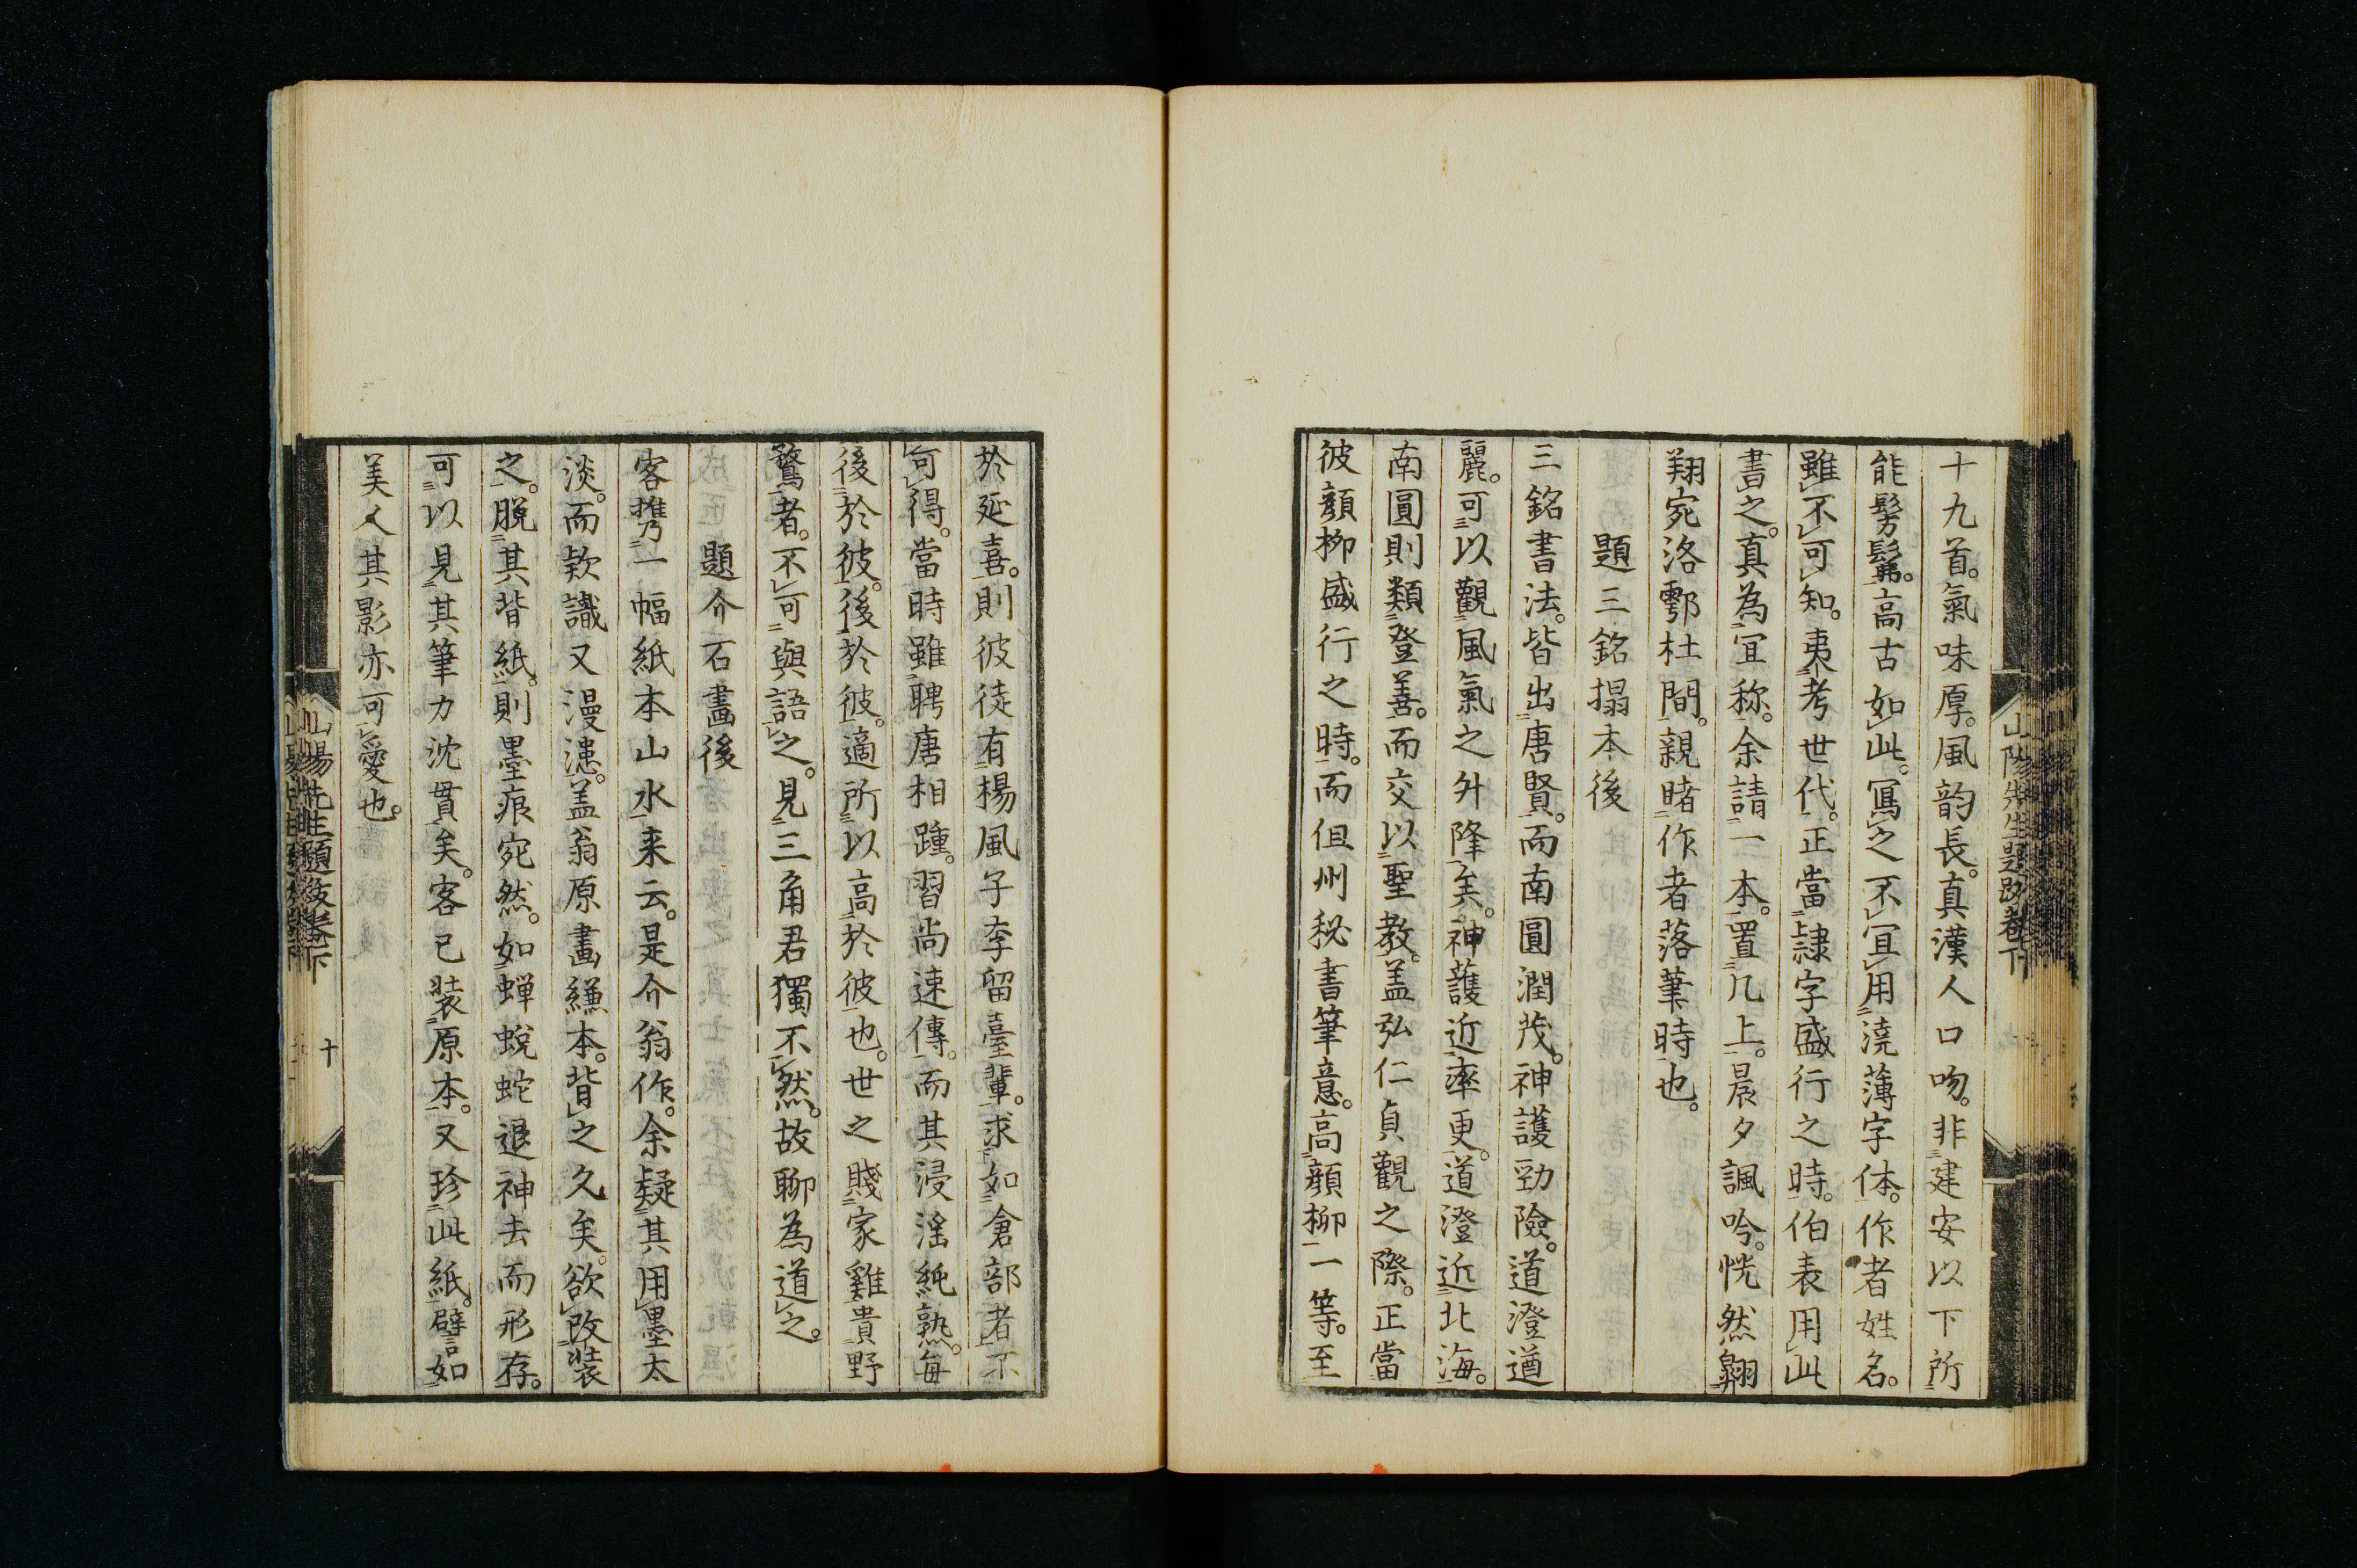 十九首。氣味厚。風韵長。真漢人口吻。非建安以下所
能髣髴。高古如此。寫之不宜用澆薄字体。作者姓名。
雖不可知。夷考世代。正當隷字盛行之時。伯表用此
書之。真為宜称。余請一本。置几上。晨夕諷吟。恍然翺
翔宛洛鄠杜間。親睹作者落筆時也。
題三銘搨本後
三銘書法。皆出唐賢。而南圓潤茂。神護勁險。道澄遒
麗。可以觀風氣之升降矣。神護近率更。道澄近北海。
南圓則類登善。而交以聖教。盖弘仁貞觀之際。正當
彼顔柳盛行之時。而但州秘書筆意。高顔柳一等。至
於延喜。則彼徒有楊風子李留臺輩。求如倉部者不
可得。當時雖聘唐相踵。習尚速傳。而其浸淫純熟。毎
後於彼。後於彼。適所以高於彼也。世之賤家雞貴野
鶩者。不可與語之。見三角君獨不然。故聊為道之。
題介石畫後
客携一幅紙本山水来云。是介翁作。余疑其用墨太
淡。而欵識又漫漶。盖翁原畫縑本。背之久矣。欲改装
之。脱其背紙。則墨痕宛然。如蝉蛻蛇退神去而形存。
可以見其筆力沈貫矣。客已装原本。又珍此紙。譬如
美人其影亦可愛也。
山陽先生題跋卷下
山陽先生題跋卷下
十